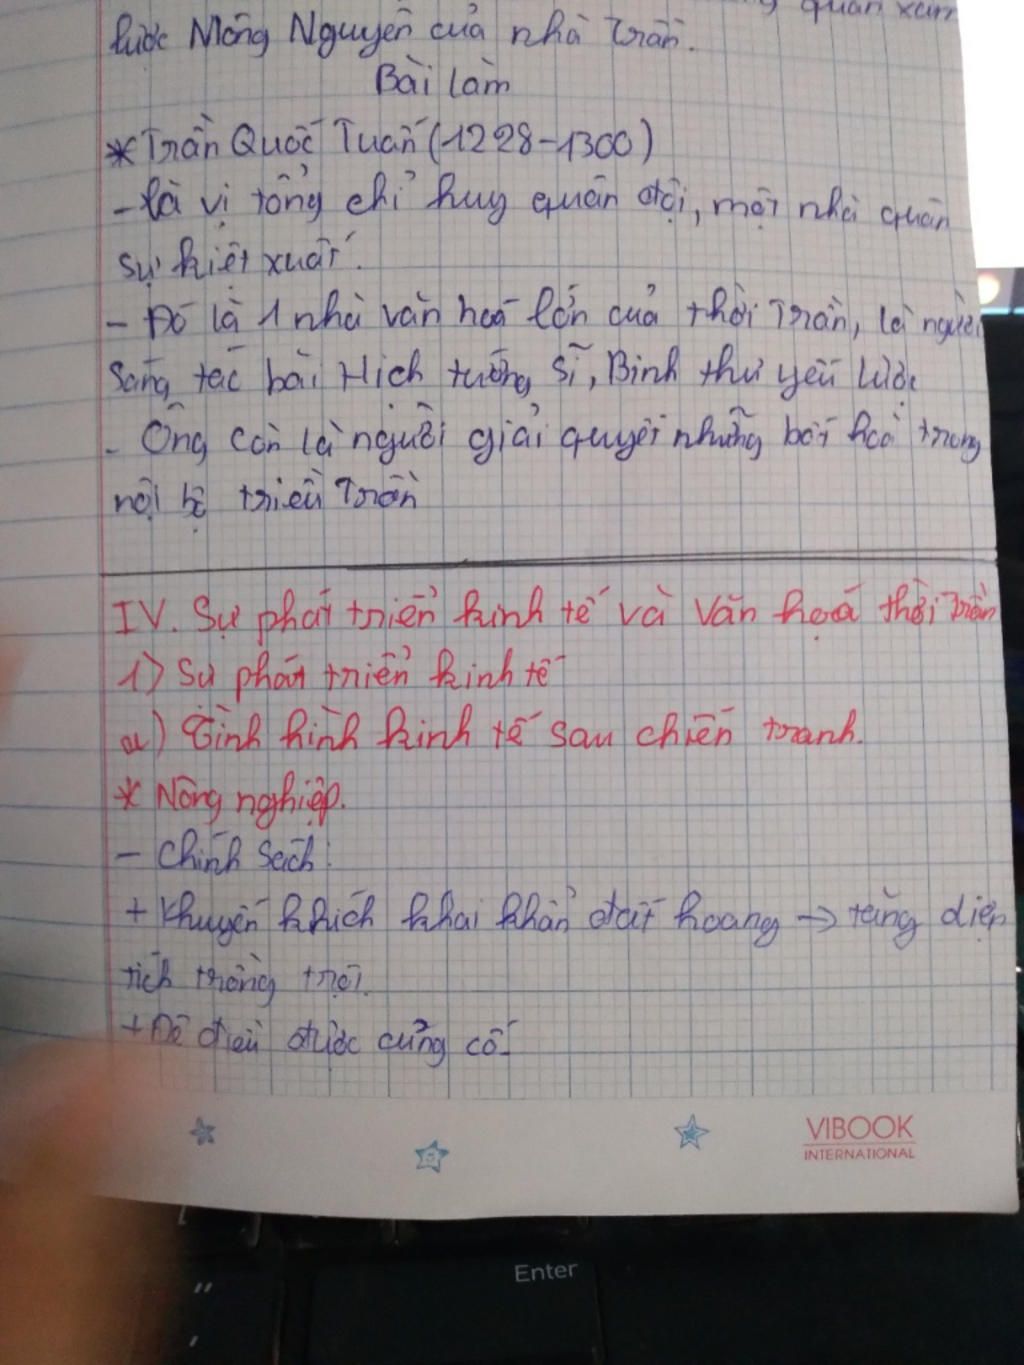 quân xâm
lược Mông Nguyên của nhà Trần.
Bài làm
* Trần Quốc Tuấn (1228-1300)
- là vị tổng chỉ huy quân đội, một nhà quân
sự kiệt xuất.
- Đó là 1 nhà văn hoá lớn của thời Trần, là người
sáng tác bài Hịch tướng sĩ, Binh thư yếu lược
- Ông còn là người giải quyết những bất hoà trong
nội bộ triều Trần
IV. Sự phát triển kinh tế và văn hoá thời Trần
1) Sự phát triển kinh tế
a) Tình hình kinh tế sau chiến tranh.
* Nông nghiệp.
- Chính sách:
+ Khuyến khích khai khẩn đất hoang → tăng diện
tích trồng trọt.
+ Đê điều được củng cố.
VIBOOK
INTERNATIONAL
Enter